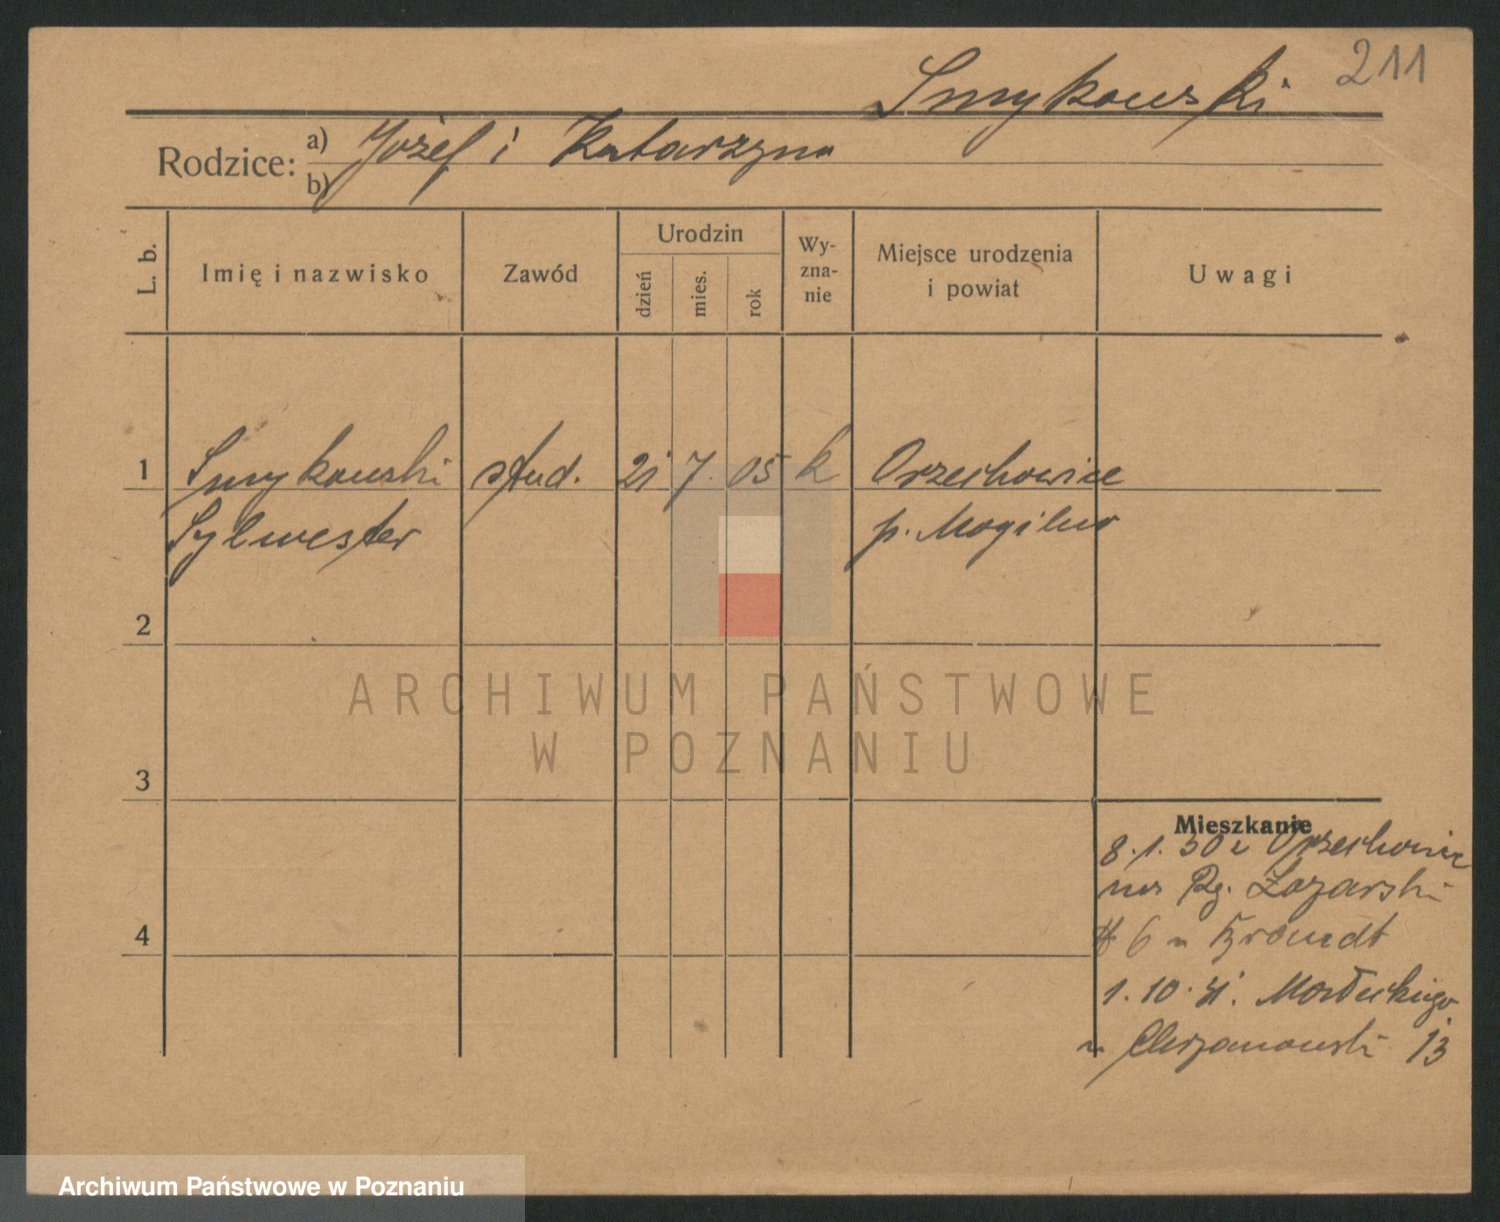 Smykowski 211
Rodzice: a) Józef i Katarzyna
b)
L. b.
Imię i nazwisko
Zawód
Urodzin
dzień
mies.
rok
Wy-
zna-
nie
Miejsce urodzenia
i powiat
Uwagi
1 Smykowski stud. 21 7. 05 k Orzechowice
Sylwester p. Mogilno
2
3
4
Mieszkanie
8.1.30 z Orzechowic
na Rg. Łazarski
6
1.10.31. Małeckiego
u Chrzanowski 13
ARCHIWUM PAŃSTWOWE
W POZNANIU
Archiwum Państwowe w Poznaniu